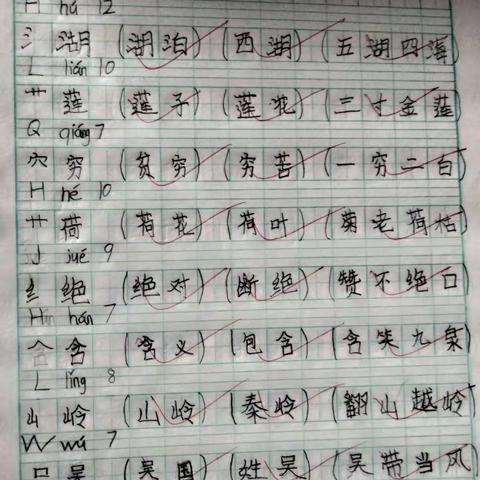 H hú 12
氵 湖 (湖泊) (西湖) (五湖四海)
L lián 10
艹 莲 (莲子) (莲花) (三寸金莲)
Q qióng 7
穴 穷 (贫穷) (穷苦) (一穷二白)
H hé 10
艹 荷 (荷花) (荷叶) (菊老荷枯)
J jué 9
纟 绝 (绝对) (断绝) (赞不绝口)
H hán 7
含 (含义) (包含) (含笑九泉)
L lǐng 8
山 岭 (山岭) (秦岭) (翻山越岭)
W wú 7
口 吴 (吴国) (姓吴) (吴带当风)